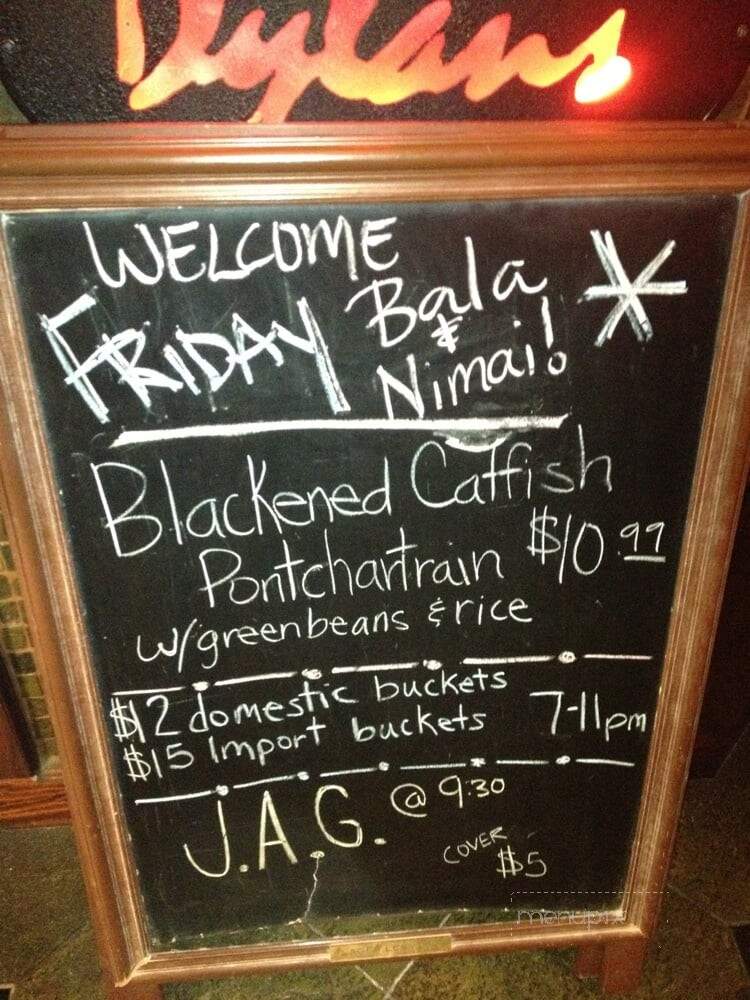 Dylans
WELCOME
FRIDAY Bala
& Nimai!
Blackened Catfish
Pontchartrain $10.99
w/greenbeans & rice
$12 domestic buckets
$15 Import buckets 7-11pm
J.A.G. @ 9:30
COVER
$5
menupix